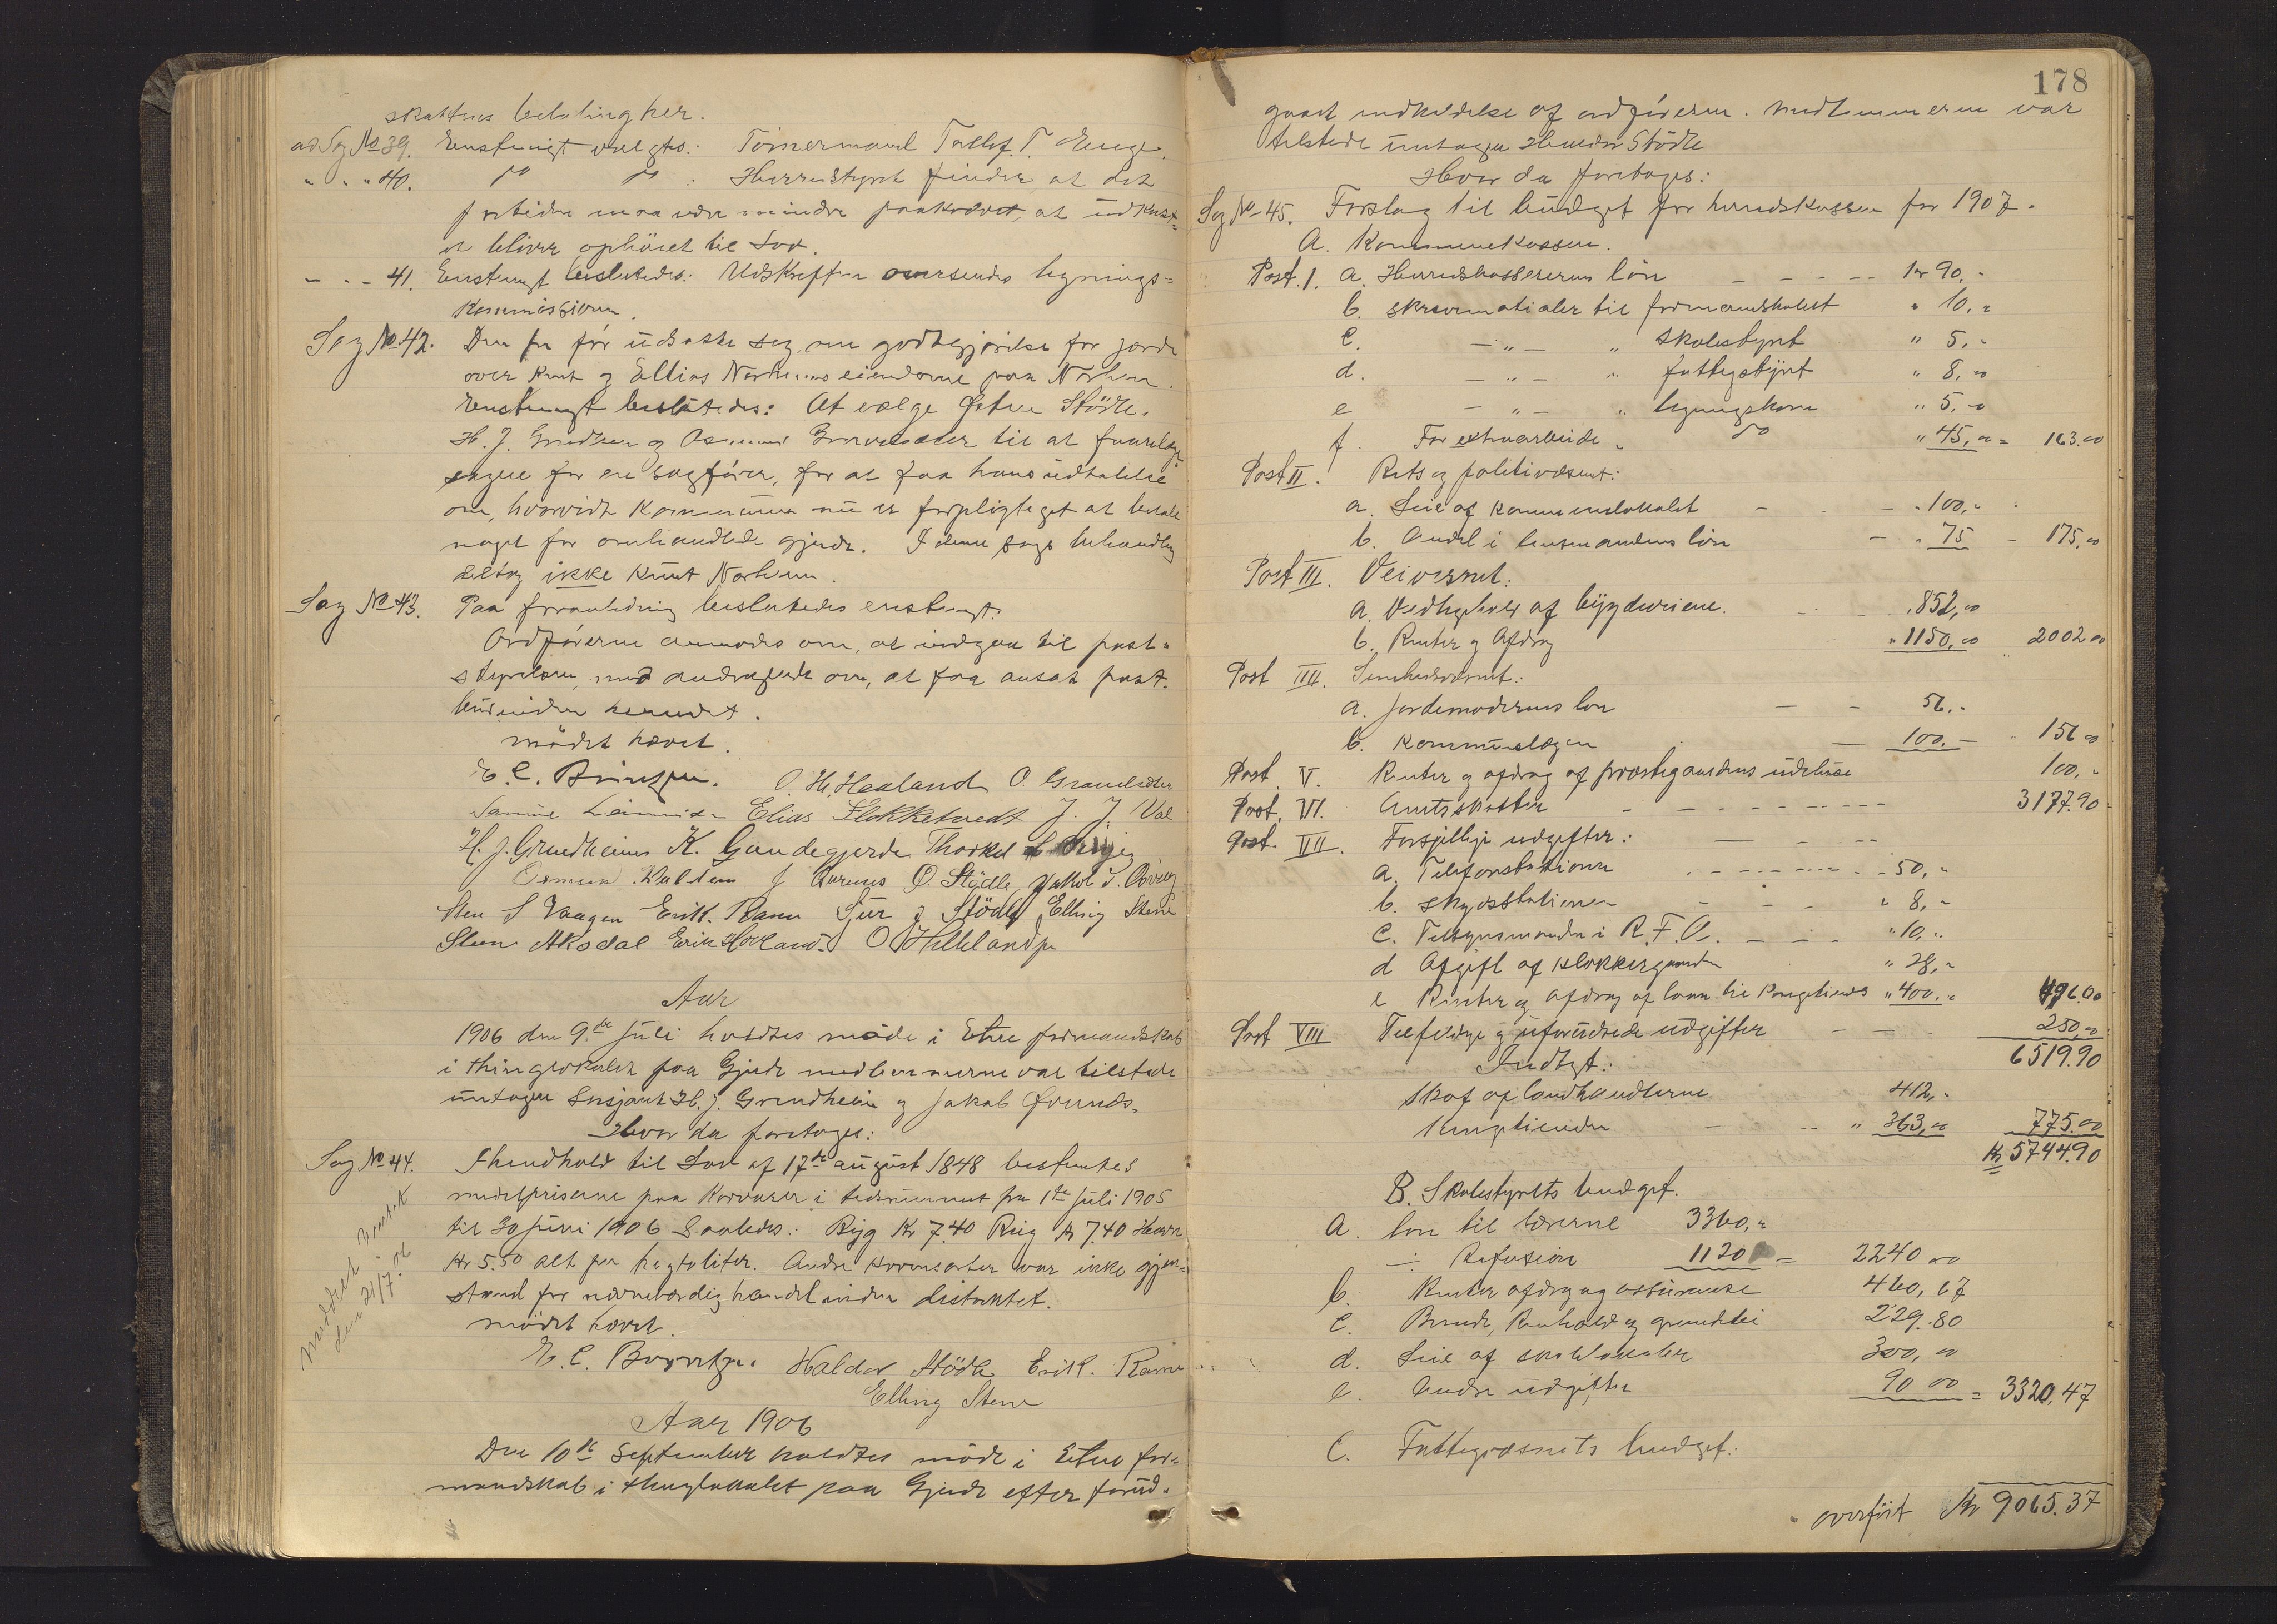 skattens betaling her.
ad Sag No 39. Enstemigt valgtes: Tømermand Tollef T. Enge.
" " " 40. do do : Herredstyret finder, at det
fortiden maa være mindre paakrævet, at udkast-
et bliver ophøiet til Lov.
" - - 41. Enstemigt besluttedes: Udskriften oversendes ligning-
kommissionen.
Sag No 42. Den fra før udsatte sag om godtgjørelse for jorde
over Knut og Ellias Norheims eiendomme paa Norheim.
Enstemigt besluttedes: At vælge Østen Stødle,
H. J. Grindheim og Osmund til at forelægge
sagen for en sagfører, for at faa hans udtalelse
om, hvorvidt Kommunen nu er forpligtiget at betale
noget for omhandlede gjerde. I denne sags behandling
deltog ikke Knut Norheim.
Sag No 43. Paa foranledning besluttedes enstemigt:
Ordføreren anmodes om, at indgaa til post-
styrelsen med andragende om, at faa ansat post-
bud inden herredet.
mødet hævet.
E. C. Børretzen. O. H. Haaland O. Grannesæter
Samuel Elias Flokketvedt J. J. Val
H. J. Grindheim K. Gundegjerde Thorkel
Osmund J Aurenes O. Stødle Jakob T.
Sten S Vaagen Erik. Ramn Siur J Stødle Elling Stene
Steen Aksdal Erik Hovland. O Helleland
Aar
1906 den 9de Juli holdtes møde i Etne formandskab
i thinglokalet paa Gjerde medlemmerne var tilstede
untagen Lensjant H. J. Grindheim og Jakob Øvernæs.
Hvor da foretoges:
Sag No 44. I henhold til Lov af 17de august 1848 bestemtes
middelpriserne paa Kornvarer i tidsrummet fra 1ste Juli 1905
til 30 Juni 1906 saaledes: Byg Kr 7.40 Rug Kr 7.40 Havre
Kr 5.50 alt per hegtoliter. Andre kornsorter var ikke gjen-
stand for nævneværdig handel inden distriktet.
mødet hævet.
Meddelt
den 21/7. 06
E. C. Børretzen. Haldor Stødle Erik. Ramn
Elling Stene
Aar 1906
Den 10de September holdtes møde i Etne for-
mandskab i thinglokalet paa Gjerde efter forud-
178
gaaet indkaldelse af ordføreren. Medlemmerne var
tilstede untagen Haldor Stødle
Hvor da foretoges:
Sag No 45. Forslag til budget for herredskassen for 1907.
A. Kommunekassen.
Post. 1. a. Herredskassererens løn - - - - kr 90.-
b. skrivematialer til formandskabet " 10.-
c. - " - " skolestyret " 5.-
d. - " - " fattigstyret " 8,00
e - " - " ligningskom " 5.-
f. For extraarbeide " do " 45,00 = 163.00
Post II. Rets og politivæsenet:
a. Leie af kommunelokalet - - " 100,-
b. Andel i lensmandens løn - " 75 - 175,00
Post III. Veivæsenet:
a. Vedligehold af bygdeveiene. - - " 852,00
b. Renter og Afdrag " 1150,00 2002.00
Post IIII. Sundhedsvæsenet:
a. Jordemoderens løn - - 56.-
b. Kommunelægen - 100.- 156 00
Post V. Renter og afdrag af præstegaardens udehuse 100,-
Post. VI. Amtsskatten - - - - - 3177.90
Post. VII. Forsjellige udgifter: - - - -
a. Telefonstationen - - - - 50,-
b. skydsstationen - - - " 8,-
c. Tilsynsmanden i R. F. A. - - - " 10,-
d Afgift af klokkergaarden " 28,-
e Renter og Afdrag af laan til Kongetiende " 400,- 496.00
Post VIII Tilfældige og uforudsede udgifter - - - 250,00
6519.90
Indtægt:
Skat af landhandlerne 412,-
Kongetienden - " 363,00 775.00
Kr 5744.90
B. Skolestyrets budget.
a. løn til lærerne 3360,-
÷ Refusion 1120 = 2240 00
b. Renter afdrag og assurance 460,67
c. Brænde, Renhold og grundleie 229.80
d. Leie af skolelokaler 300,00
e. Andre udgifter 90 00 = 3320,47
C. Fattigvæsnets budget:
overført Kr 9065.37